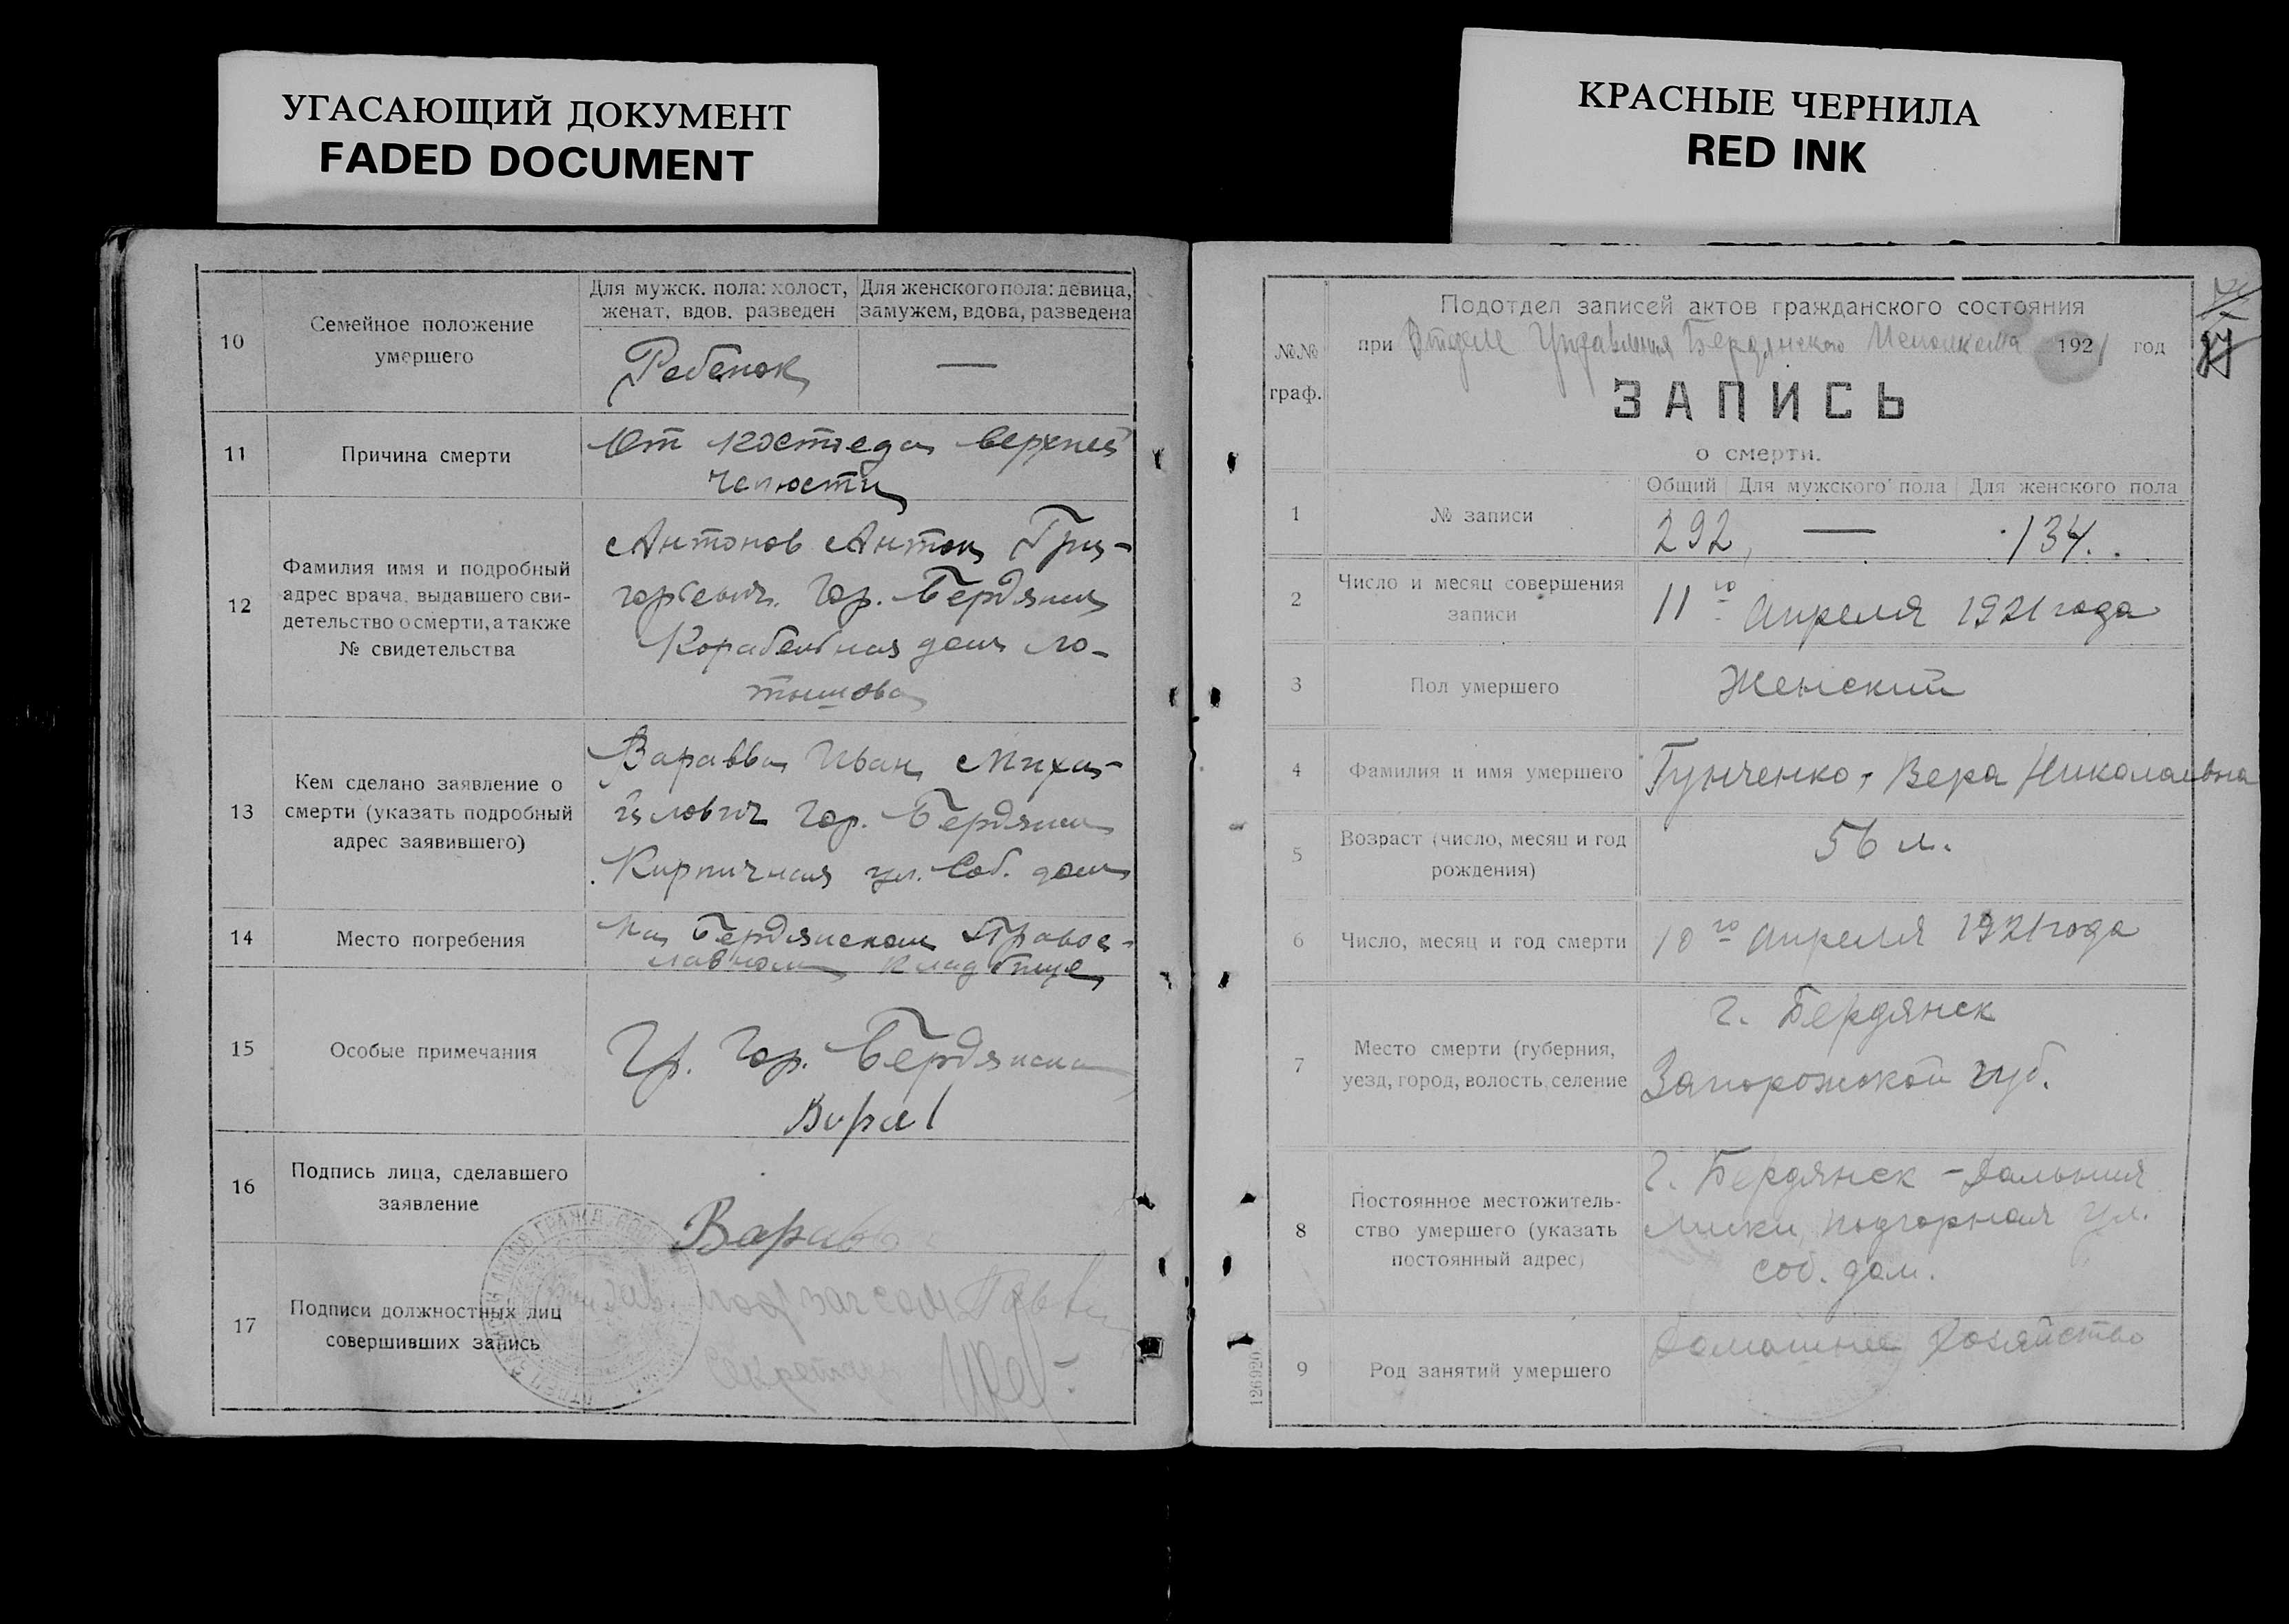 УГАСАЮЩИЙ ДОКУМЕНТ
FADED DOCUMENT
КРАСНЫЕ ЧЕРНИЛА
RED INK
10
Семейное положение
умершего
Для мужск. пола: холост,
женат, вдов. разведен
Для женского пола: девица,
замужем, вдова, разведена
Ребенок
—
11
Причина смерти
От костоеда верхней
челюсти
12
Фамилия имя и подробный
адрес врача, выдавшего сви-
детельство о смерти, а также
№ свидетельства
Антонов Антон Гри-
горьевич. Гор. Бердянск
Корабельная дом Ло-
13
Кем сделано заявление о
смерти (указать подробный
адрес заявившего)
Варавва Иван Миха-
йлович гор. Бердянск
Кирпичная ул. Соб. дом
14
Место погребения
На Бердянском Правос-
лавном кладбище
15
Особые примечания
Гр. Гор. Бердянска
16
Подпись лица, сделавшего
заявление
Варавва
17
Подписи должностных лиц
совершивших запись
Секретарь
№№
граф.
Подотдел записей актов гражданского состояния
при Отделе Управления Бердянского Исполкома 1921 год
ЗАПИСЬ
о смерти.
1
№ записи
Общий
Для мужского пола
Для женского пола
292,
—
134.
2
Число и месяц совершения
записи
11го Апреля 1921 года
3
Пол умершего
Женский
4
Фамилия и имя умершего
Гунченко, Вера Николаевна
5
Возраст (число, месяц и год
рождения)
56 л.
6
Число, месяц и год смерти
10го Апреля 1921 года
7
Место смерти (губерния,
уезд, город, волость, селение
г. Бердянск
Запорожской губ.
8
Постоянное местожитель-
ство умершего (указать
постоянный адрес)
г. Бердянск - Дальния
Лиски, Подгорная ул.
соб. дом.
9
Род занятий умершего
Домашнее хозяйство
126920